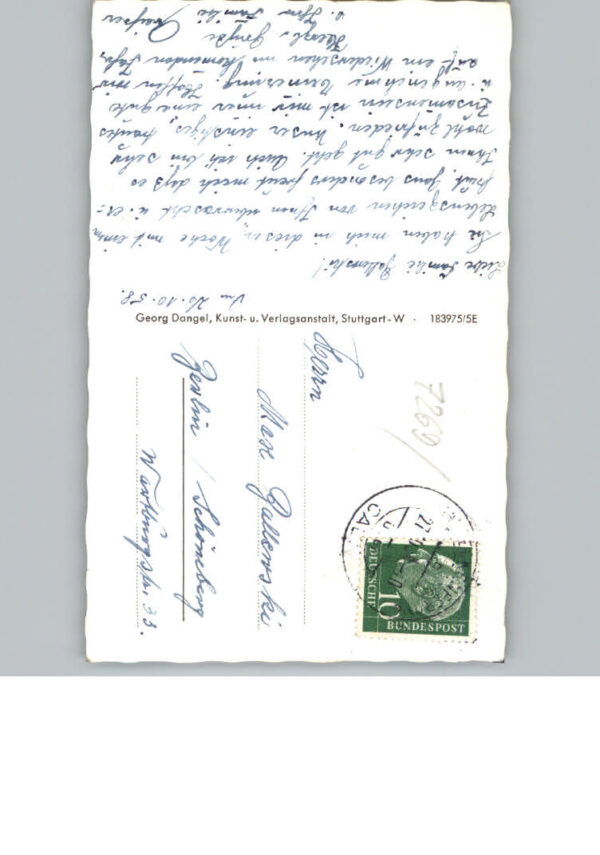 26.10.58.
Liebe Familie Gallowski!
Sie haben mich in dieser Woche mit einem
Lebenszeichen von Ihnen überrascht u. er-
freut. Ganz besonders freut mich daß es
Ihnen sehr gut geht. Auch ich bin sehr
wohl zufrieden. Unser einstiges, trautes
Zusammensein ist mir immer eine gute
u. angenehme Erinnerung. Hoffen wir
auf ein Wiedersehen im kommenden Jahr.
Herzl. Grüße
v. Ihrer Familie
Georg Dangel, Kunst- u. Verlagsanstalt, Stuttgart-W · 183975/5E
7269/
DEUTSCHE
BUNDESPOST
10
Herrn
Max Gallowski
Berlin / Schöneberg
Wartburgstr. 33.